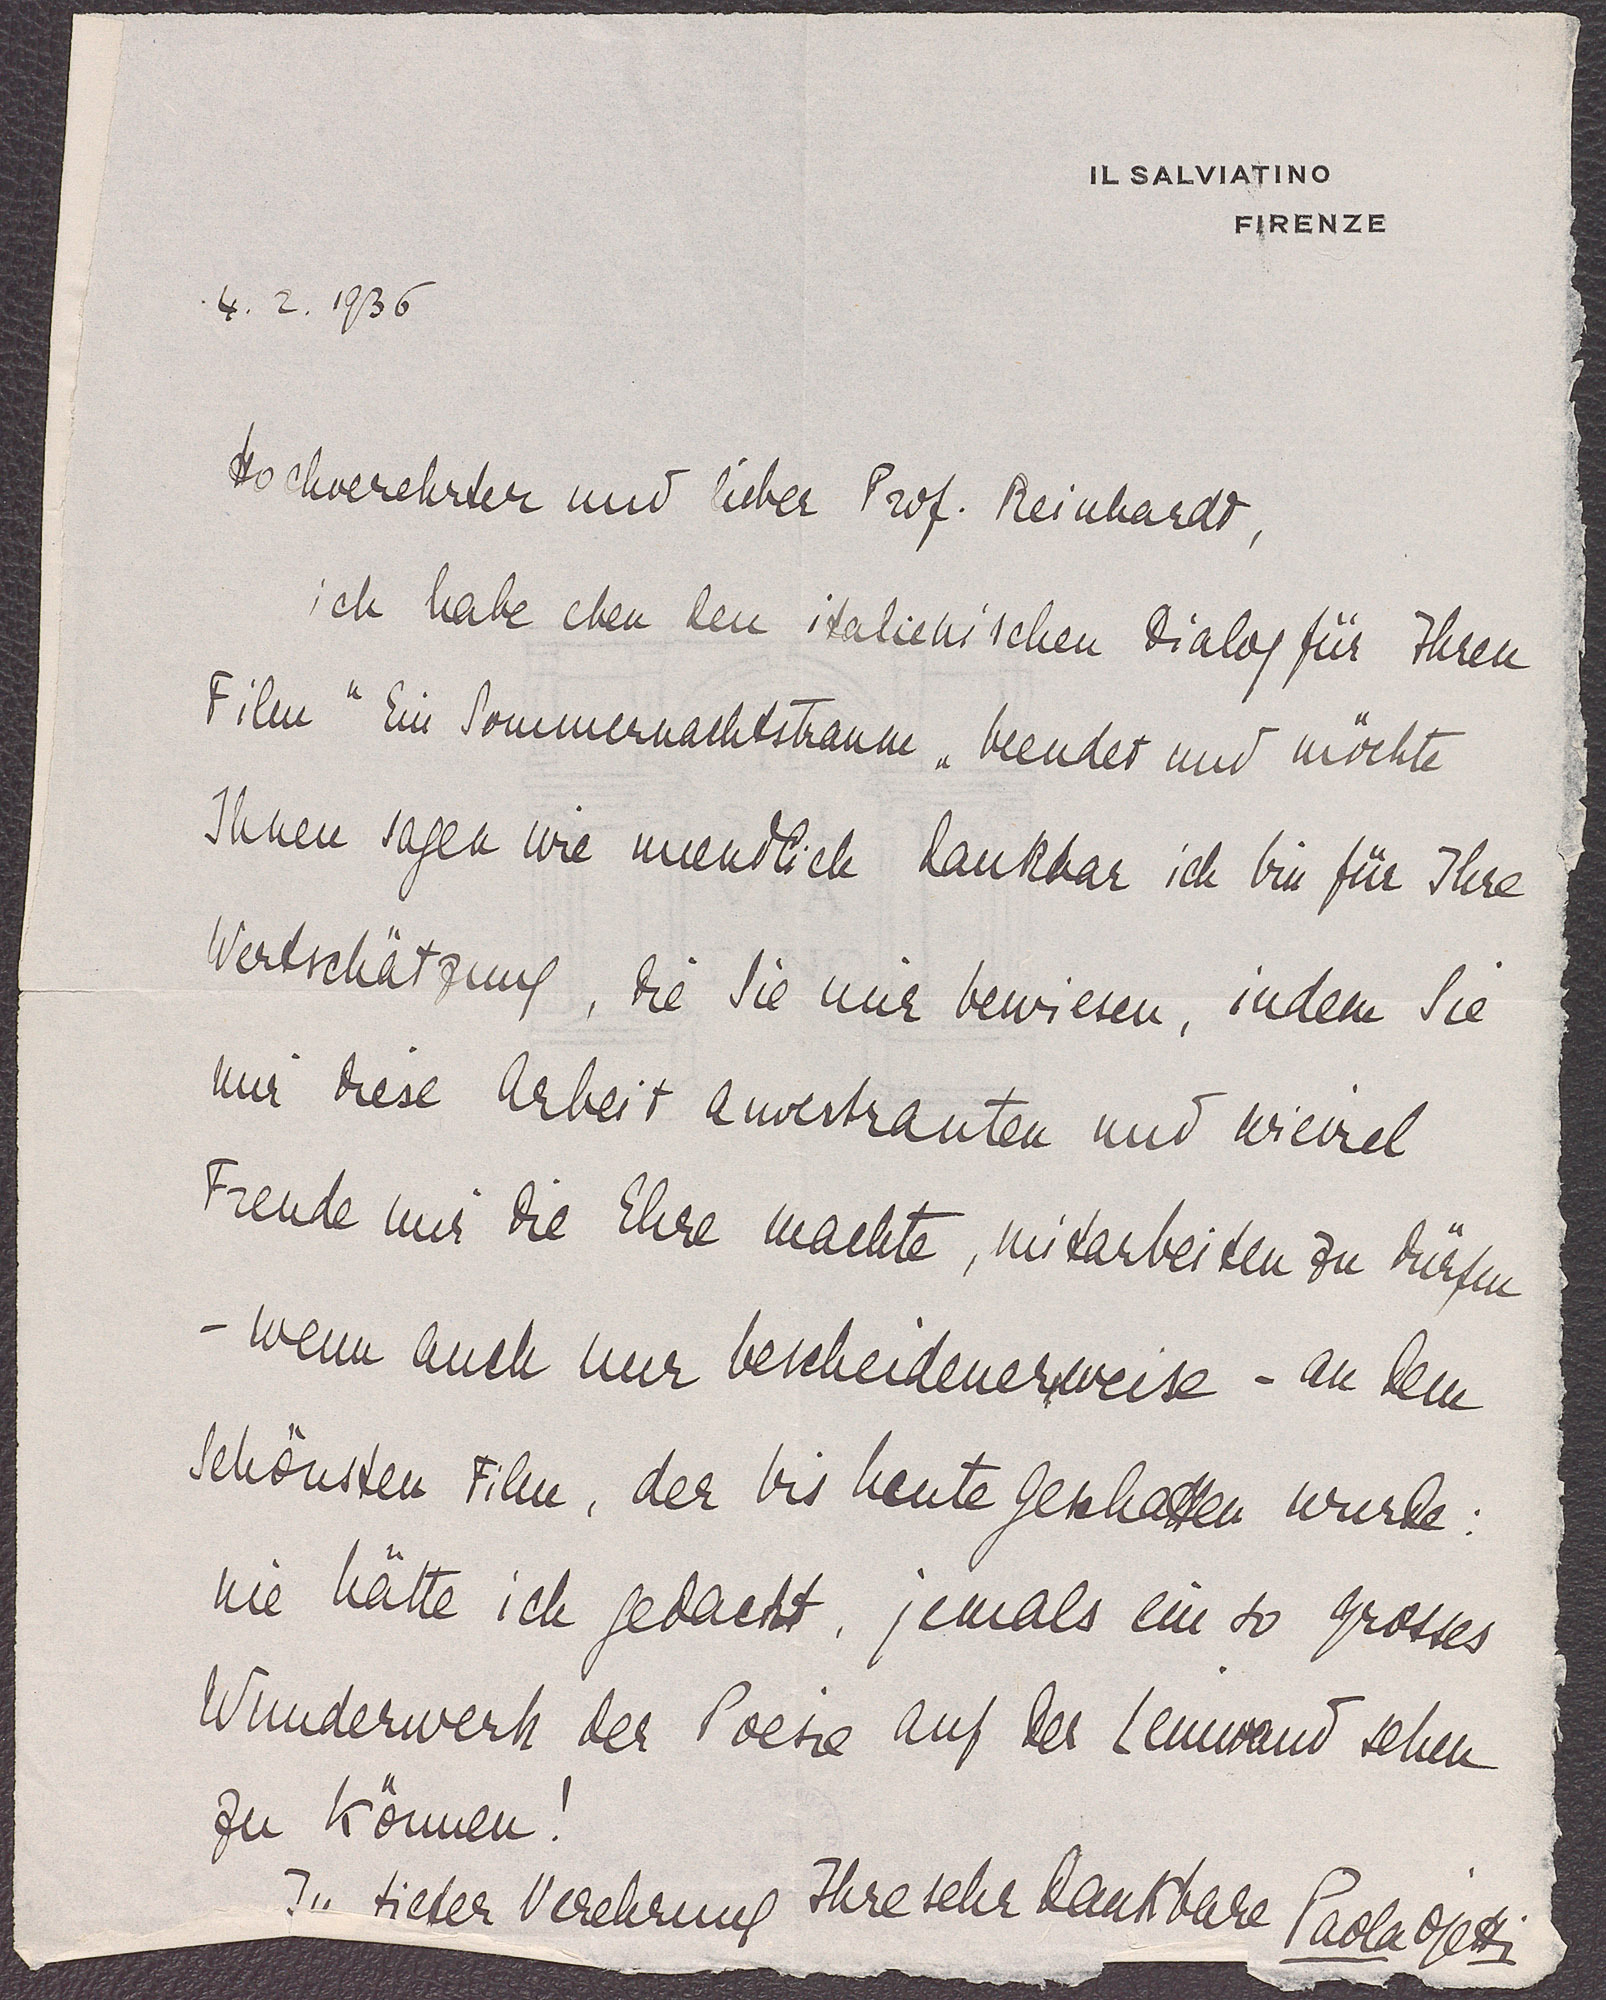 IL SALVIATINO
FIRENZE
4. 2. 1936
Hochverehrter und lieber Prof. Reinhardt,
ich habe eben den italienischen Dialog für Ihren
Film " Ein Sommernachtstraum „ beendet und möchte
Ihnen sagen wie unendlich dankbar ich bin für Ihre
Wertschätzung, die Sie mir bewiesen, indem Sie
mir diese Arbeit anvertrauten und wieviel
Freude mir die Ehre machte, mitarbeiten zu dürfen
- wenn auch nur bescheidenerweise - an dem
schönsten Film, der bis heute geschaffen wurde:
nie hätte ich gedacht, jemals ein so grosses
Wunderwerk der Poesie auf der Leinwand sehen
zu können!
In tiefer Verehrung Ihre sehr dankbare Paola Ojetti